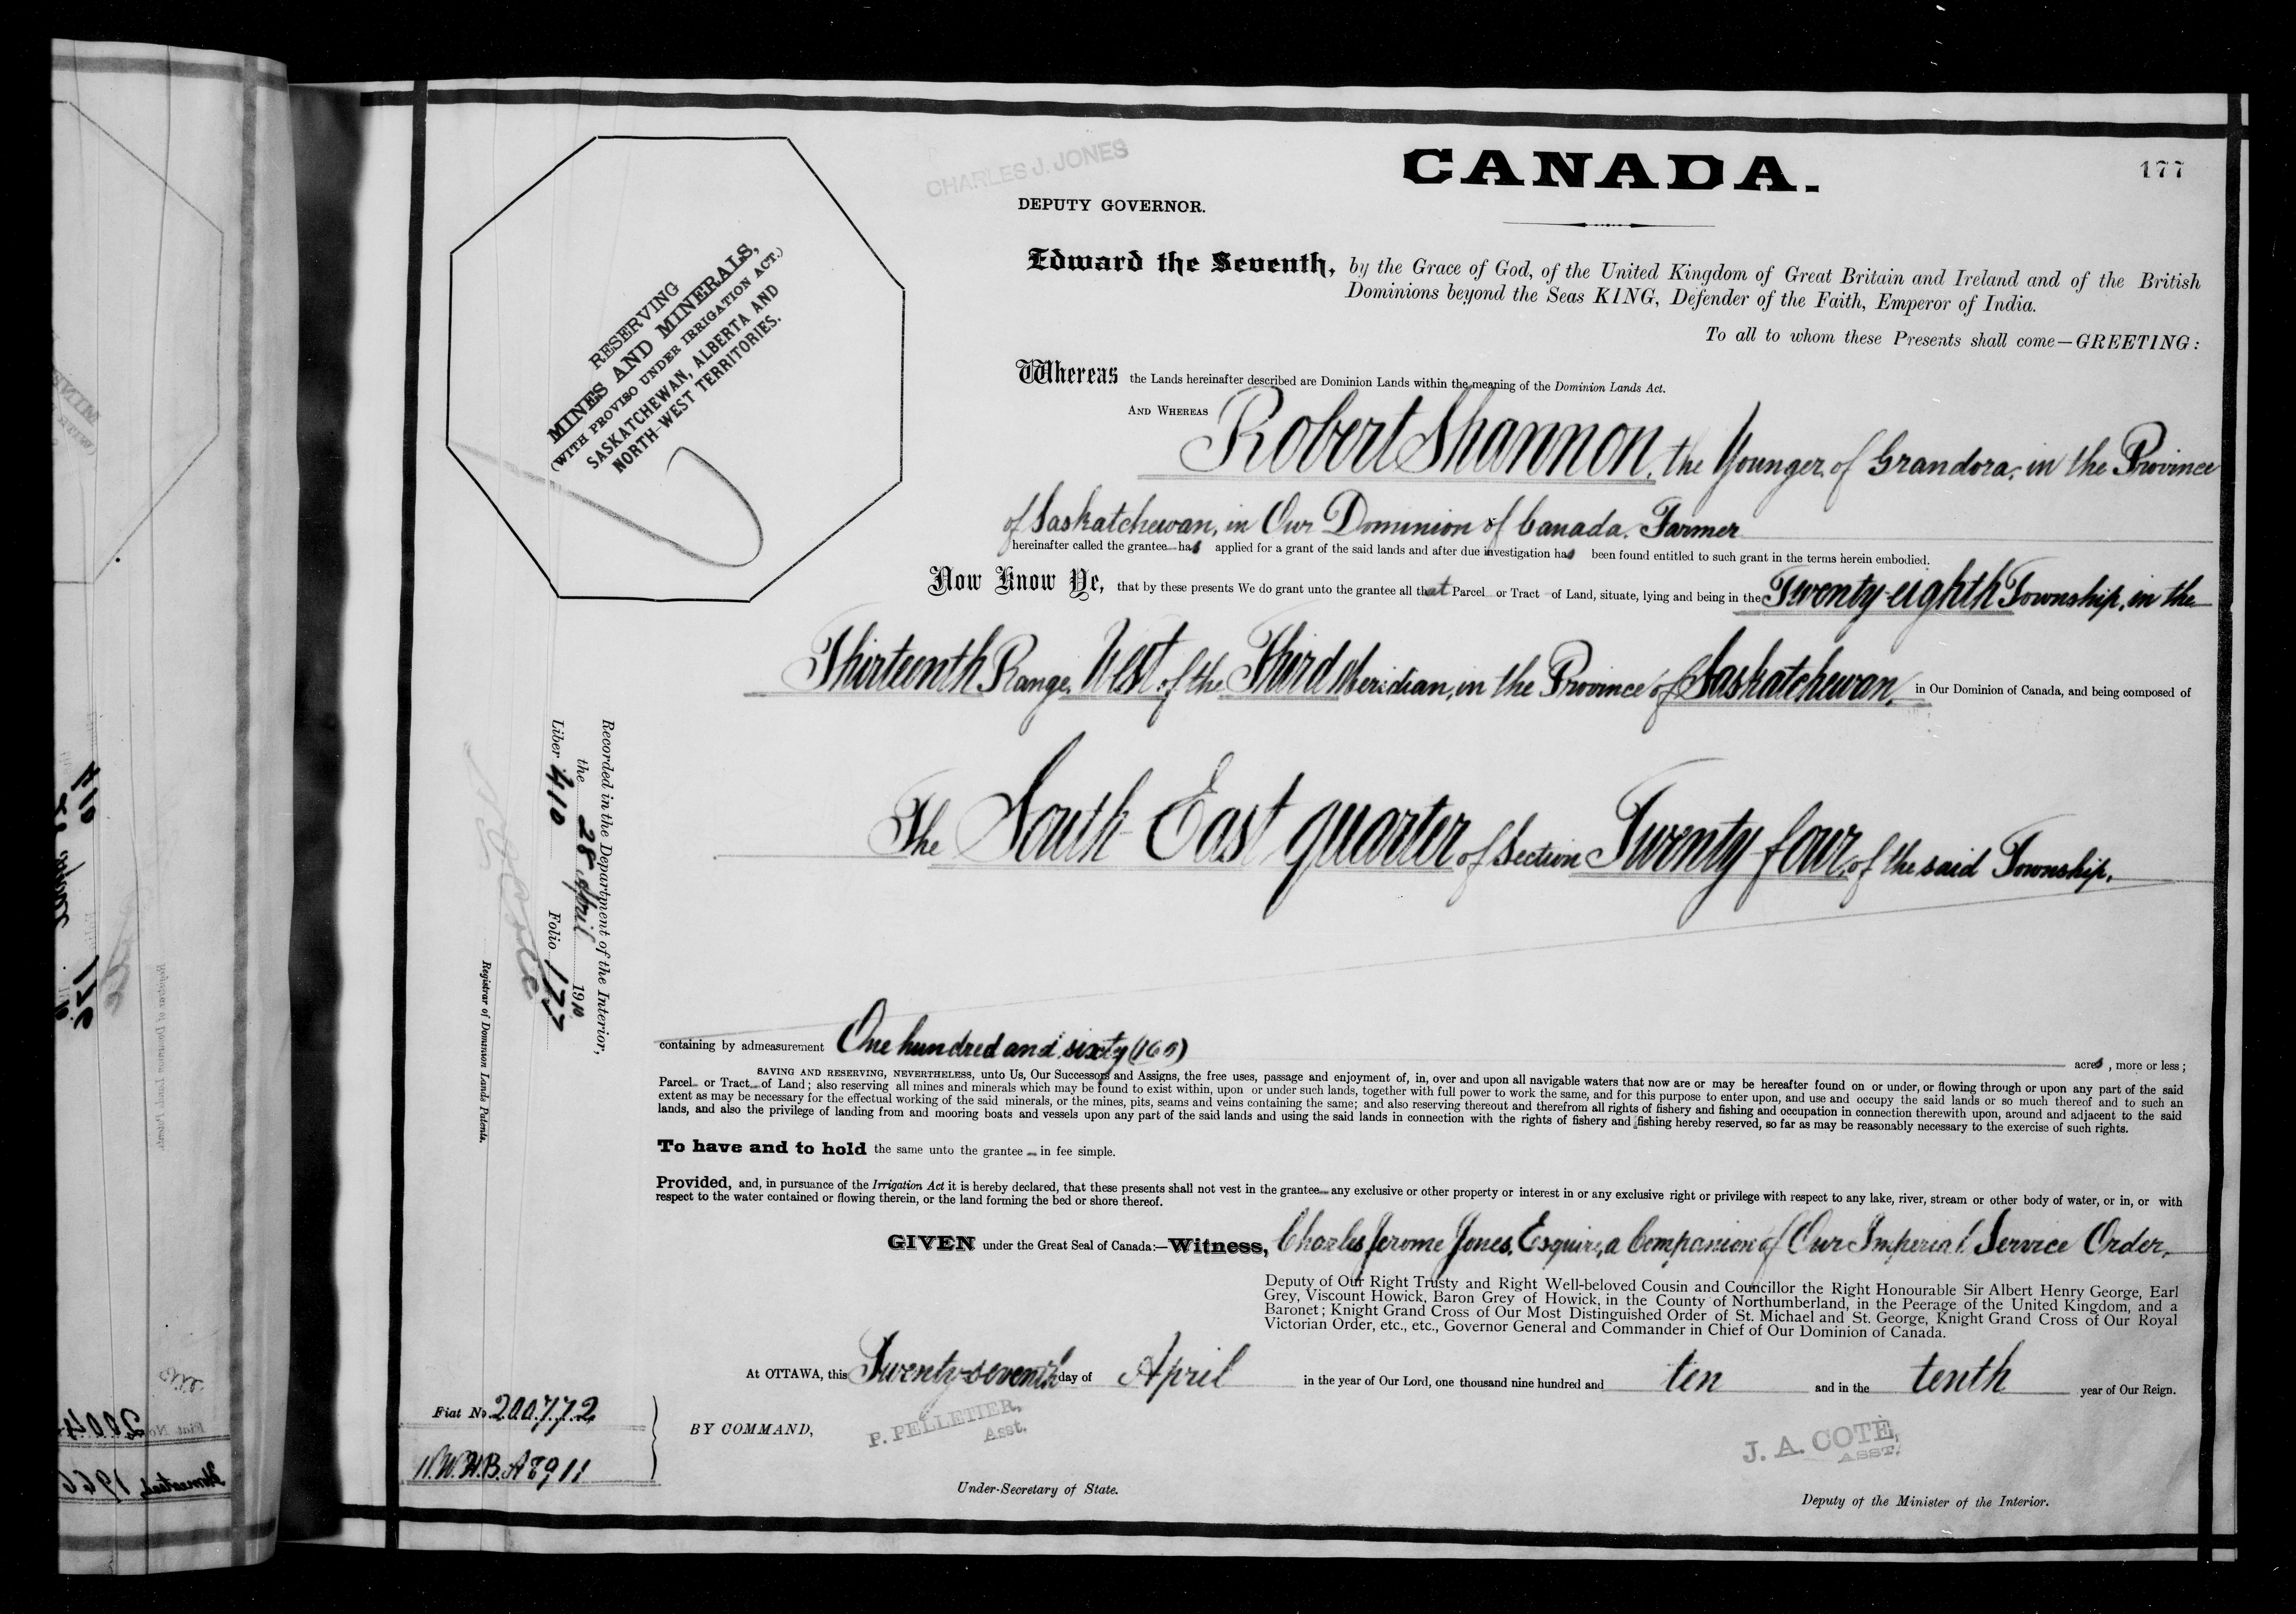 CHARLES J. JONES
CANADA.
177
DEPUTY GOVERNOR.
Edward the Seventh, by the Grace of God, of the United Kingdom of Great Britain and Ireland and of the British
Dominions beyond the Seas KING, Defender of the Faith, Emperor of India.
To all to whom these Presents shall come—GREETING:
RESERVING
MINES AND MINERALS,
(WITH PROVISO UNDER IRRIGATION ACT.)
SASKATCHEWAN, ALBERTA AND
NORTH-WEST TERRITORIES.
Whereas the Lands hereinafter described are Dominion Lands within the meaning of the Dominion Lands Act.
AND WHEREAS Robert Shannon, the Younger, of Grandora, in the Province
of Saskatchewan, in Our Dominion of Canada, Farmer
hereinafter called the grantee has applied for a grant of the said lands and after due investigation has been found entitled to such grant in the terms herein embodied.
Now Know Ye, that by these presents We do grant unto the grantee all that Parcel or Tract of Land, situate, lying and being in the Twenty-eighth Township, in the
Thirteenth Range, West of the Third Meridian, in the Province of Saskatchewan, in Our Dominion of Canada, and being composed of
The South East quarter of Section Twenty four, of the said Township.
Recorded in the Department of the Interior,
the 28 April 1910
Liber 410 Folio 177
Registrar of Dominion Lands Patents.
containing by admeasurement One hundred and sixty (160) acres, more or less;
SAVING AND RESERVING, NEVERTHELESS, unto Us, Our Successors and Assigns, the free uses, passage and enjoyment of, in, over and upon all navigable waters that now are or may be hereafter found on or under, or flowing through or upon any part of the said
Parcel or Tract of Land; also reserving all mines and minerals which may be found to exist within, upon or under such lands, together with full power to work the same, and for this purpose to enter upon, and use and occupy the said lands or so much thereof and to such an
extent as may be necessary for the effectual working of the said minerals, or the mines, pits, seams and veins containing the same; and also reserving thereout and therefrom all rights of fishery and fishing and occupation in connection therewith upon, around and adjacent to the said
lands, and also the privilege of landing from and mooring boats and vessels upon any part of the said lands and using the said lands in connection with the rights of fishery and fishing hereby reserved, so far as may be reasonably necessary to the exercise of such rights.
To have and to hold the same unto the grantee in fee simple.
Provided, and, in pursuance of the Irrigation Act it is hereby declared, that these presents shall not vest in the grantee any exclusive or other property or interest in or any exclusive right or privilege with respect to any lake, river, stream or other body of water, or in, or with
respect to the water contained or flowing therein, or the land forming the bed or shore thereof.
GIVEN under the Great Seal of Canada:—Witness, Charles Jerome Jones, Esquire, a Companion of Our Imperial Service Order,
Deputy of Our Right Trusty and Right Well-beloved Cousin and Councillor the Right Honourable Sir Albert Henry George, Earl
Grey, Viscount Howick, Baron Grey of Howick, in the County of Northumberland, in the Peerage of the United Kingdom, and a
Baronet; Knight Grand Cross of Our Most Distinguished Order of St. Michael and St. George, Knight Grand Cross of Our Royal
Victorian Order, etc., etc., Governor General and Commander in Chief of Our Dominion of Canada.
At OTTAWA, this Twenty-seventh day of April in the year of Our Lord, one thousand nine hundred and ten and in the tenth year of Our Reign.
Fiat No. 200772
N.W.H.B.A 8911
BY COMMAND,
P. PELLETIER,
Asst.
Under-Secretary of State.
J. A. COTE,
ASST.
Deputy of the Minister of the Interior.